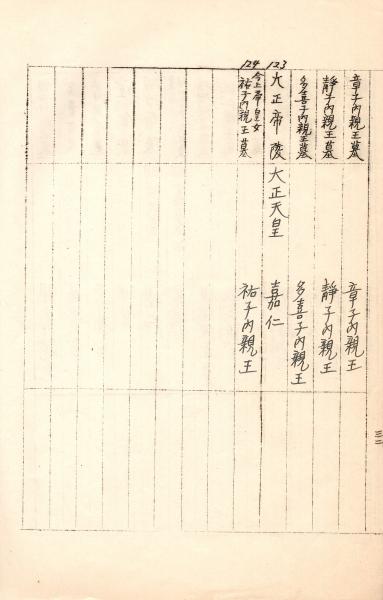 章子内親王墓
章子内親王
静子内親王墓
静子内親王
多喜子内親王墓
多喜子内親王
123
大正帝陵
大正天皇
嘉仁
124
今上帝皇女
祐子内親王墓
祐子内親王
三二